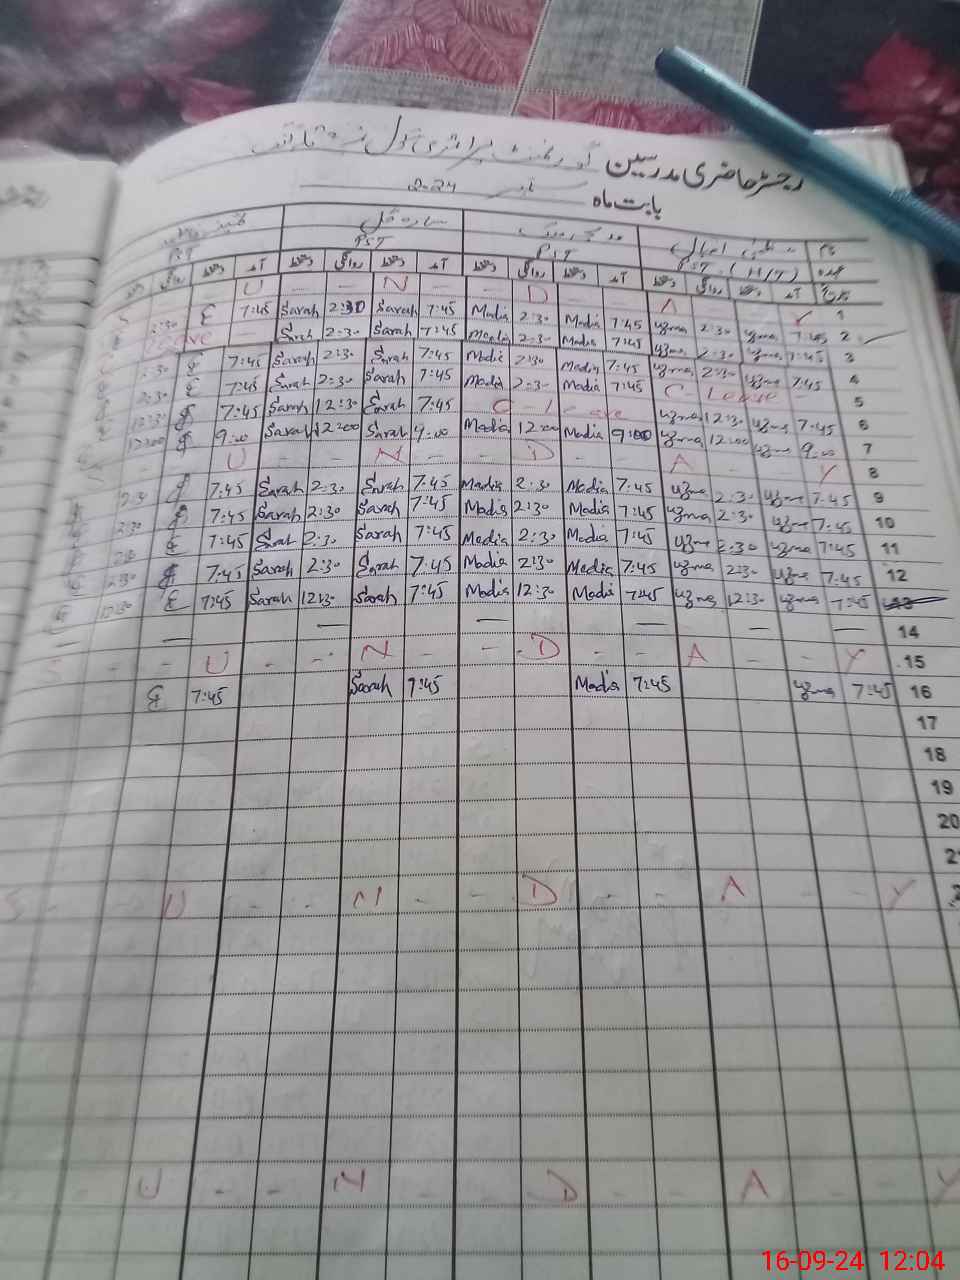 رجسٹر حاضری مدرسین گورنمنٹ پرائمری سکول نمبر
بابت ماہ 2024
نام عظمیٰ سارہ گل
عہدہ PST (H/T) PST PST PST
تاریخ آمد دستخط روانگی دستخط آمد دستخط روانگی دستخط آمد دستخط روانگی دستخط آمد دستخط روانگی دستخط
S U N D A Y 1
2:30 7:45 Sarah 2:30 Sarah 7:45 Madia 2:30 Madia 7:45 Uzma 2:30 Uzma 7:45 2
C Leave Sarah 2:30 Sarah 7:45 Madia 2:30 Madia 7:45 Uzma 2:30 Uzma 7:45 3
2:30 7:45 Sarah 2:30 Sarah 7:45 Madia 2:30 Madia 7:45 Uzma 2:30 Uzma 7:45 4
2:30 7:45 Sarah 2:30 Sarah 7:45 Madia 2:30 Madia 7:45 C - Leave - 5
12:30 7:45 Sarah 12:30 Sarah 7:45 C - Leave Uzma 12:30 Uzma 7:45 6
12:00 9:00 Sarah 12:00 Sarah 9:00 Madia 12:00 Madia 9:00 Uzma 12:00 Uzma 9:00 7
S - - U - - N - - D - - A - - Y 8
2:30 7:45 Sarah 2:30 Sarah 7:45 Madia 2:30 Madia 7:45 Uzma 2:30 Uzma 7:45 9
2:30 7:45 Sarah 2:30 Sarah 7:45 Madia 2:30 Madia 7:45 Uzma 2:30 Uzma 7:45 10
2:30 7:45 Sarah 2:30 Sarah 7:45 Madia 2:30 Madia 7:45 Uzma 2:30 Uzma 7:45 11
2:30 7:45 Sarah 2:30 Sarah 7:45 Madia 2:30 Madia 7:45 Uzma 2:30 Uzma 7:45 12
12:30 7:45 Sarah 12:30 Sarah 7:45 Madia 12:30 Madia 7:45 Uzma 12:30 Uzma 7:45 13
14
S - - U - - N - - D - - A - - Y 15
7:45 Sarah 7:45 Madia 7:45 Uzma 7:45 16
17
18
19
20
S - - U - - N - - D - - A - - Y
U - - N - - D - - A - - Y
16-09-24 12:04